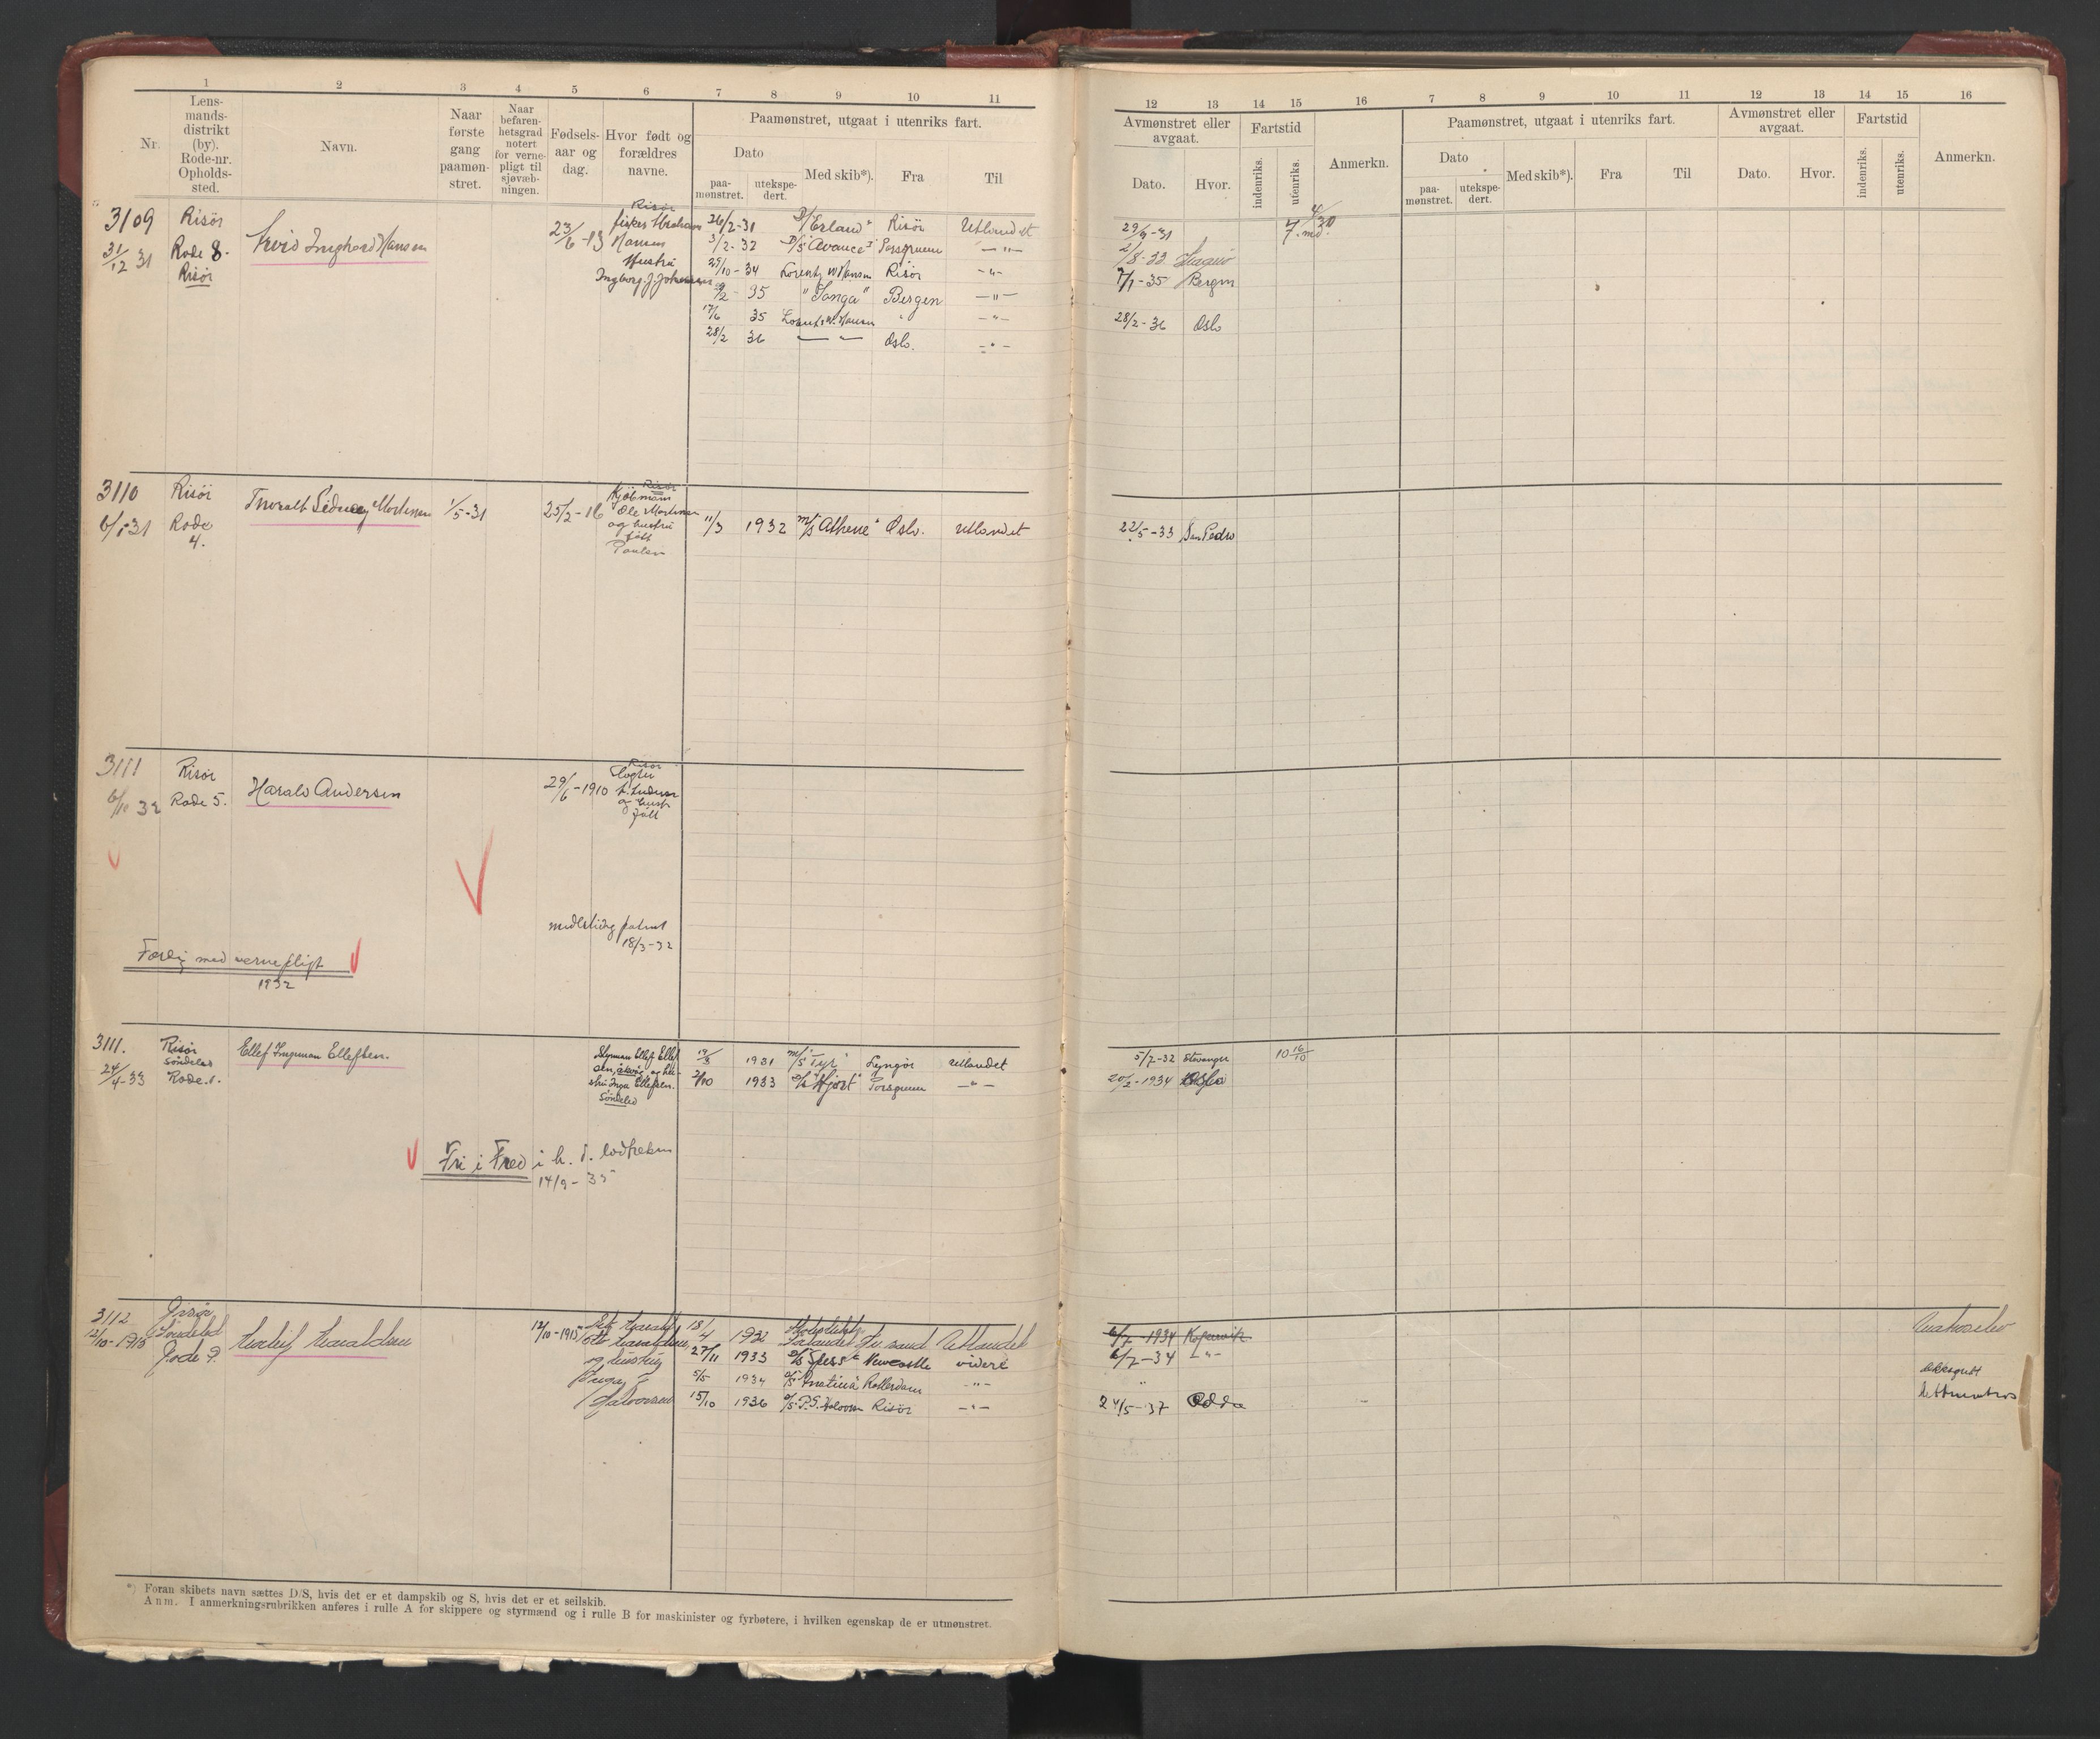 1 2 3 4 5 6 7 8 9 10 11
Nr.
Lens-
mands-
distrikt
(by).
Rode-nr.
Opholds-
sted.
Navn.
Naar
første
gang
paamøn-
stret.
Naar
befaren-
hetsgrad
notert
for verne-
pligt til
sjøvæb-
ningen.
Fødsels-
aar og
dag.
Hvor født og
forældres
navne.
Paamønstret, utgaat i utenriks fart.
Dato
paa-
mønstret.
utekspe-
dert.
Med skib*).
Fra
Til
3109
31/12 31
Risör
Rode 8.
Risör
Arvid Inghard Hansen
23/6 - 13
Risör
fisker Abraham
Hansen
Hustru
Ingborg J. Johansen
26/2-31 D/S "Erland" Risör Utlandet
3/2-32 D/S "Avance I" Porsgrunn —"—
25/10-34 Lorentz W Hansen Risör —"—
/2 - 35 "Songa" Bergen —"—
17/6 35 Lorentz W. Hansen " —"—
28/2 36 — — Oslo. —"—
3110
Risör
Rode
4.
Thoralf Sidney Mortensen
1/5-31
25/2-16
Risör
Kjöbmann
Ole Mortensen
og hustru
født
11/3 1932 M/S "Athene" Oslo. Utlandet
3111
6/10 32
Risör
Rode 5.
Harald Andersen
29/6-1910
Risör
og hustr
født
midlertidig patent
18/3-32
Færdig med vernepligt
1932
3111.
24/4-33
Risör
Söndeled
Rode 1.
Ellef Ingeman Ellefsen.
Styrman Ellef Ellef-
sen, og hu-
stru Inga Ellefsen.
Söndeled
19/8 1931 M/S "Tyr" Lyngör Utlandet
2/10 1933 D/S "Hjort" Porsgrunn —"—
Fri i Fred i h. t. lodtrekn
14/9-35
3112
12/10-1915
Risör
Söndeled
Rode 9.
Herleif Haraldsen
12/10-1915
Otto Haraldsen
og hustru
Inga f.
Halvorsen
18/4 1932 Skoleskibet
Sørlandet Kr.sand Utlandet
27/11 1933 D/S Spess Newcastle videre
5/5 1934 D/S Rotterdam —"—
15/10 1936 D/S P.S. Halvorsen Risör —"—
*) Foran skibets navn sættes D/S, hvis det er et dampskib og S, hvis det er et seilskib.
Anm. I anmerkningsrubrikken anføres i rulle A for skippere og styrmænd og i rulle B for maskinister og fyrbøtere, i hvilken egenskap de er utmønstret.
12 13 14 15 16 7 8 9 10 11 12 13 14 15 16
Avmønstret eller
avgaat.
Dato.
Hvor.
Fartstid
indenriks.
utenriks.
Anmerkn.
Paamønstret, utgaat i utenriks fart.
Dato
paa-
mønstret.
utekspe-
dert.
Med skib*).
Fra
Til
Avmønstret eller
avgaat.
Dato.
Hvor.
Fartstid
indenriks.
utenriks.
Anmerkn.
29/9-31 7 md. 4/30
2/8-33
7/1-35 Bergen
28/2-36 Oslo
22/5-33 San Pedro
5/7-32 Stavanger 10 16/10
20/2-1934 Oslo
6/7-1934 Kopervik
6/7-34 —"—
"
24/5-37 Odda
Lettmatros